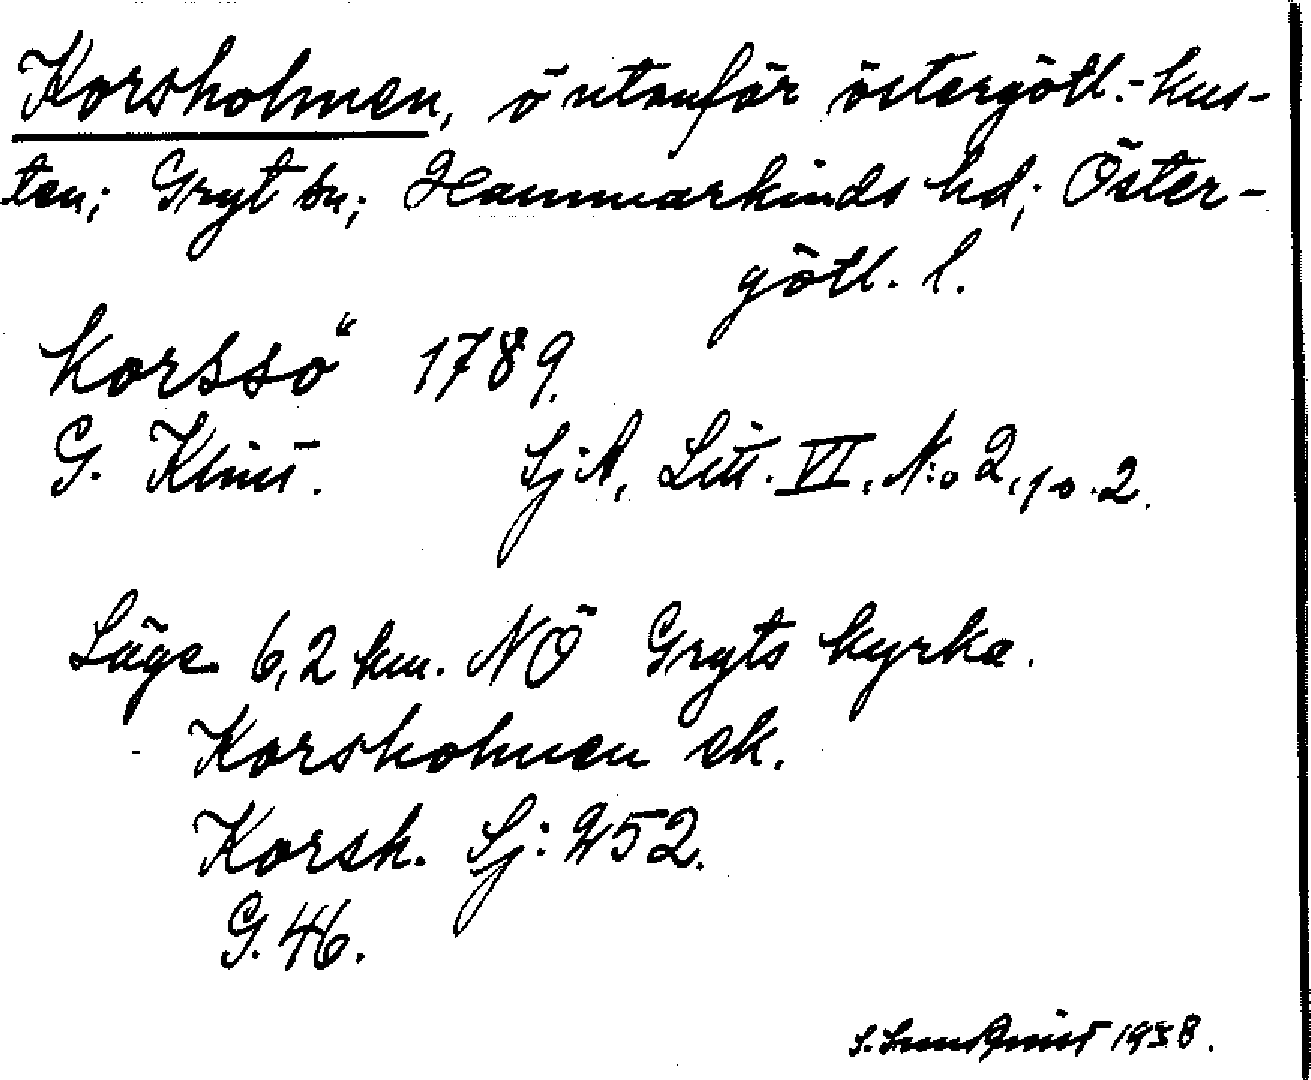 Korsholmen, ö utanför östergötl.-kus-
ten; Gryt sn; Hammarkinds hd; Öster-
götl. l.
Korssö 1789.
G. Klint. SjA, Litt. VI, N:o 2, 2.
Läge 6,2 km. NÖ Gryts kyrka.
Korsholmen ek.
Korsh. Sj: 252.
G. 46.
1938.